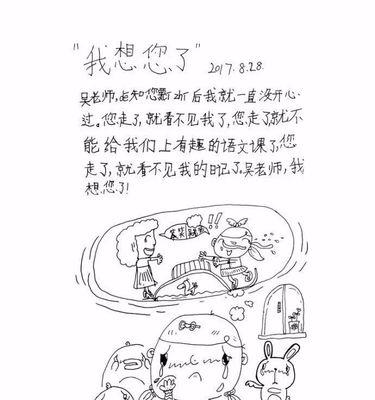 "我想您了" 2017.8.28.
吴老师,知您后我就一直没开心
过。您走了,就看不见我了,您走了就不
能给我们上有趣的语文课了,您
走了,就看不见我的日记了。吴老师,我
想您了!
!!